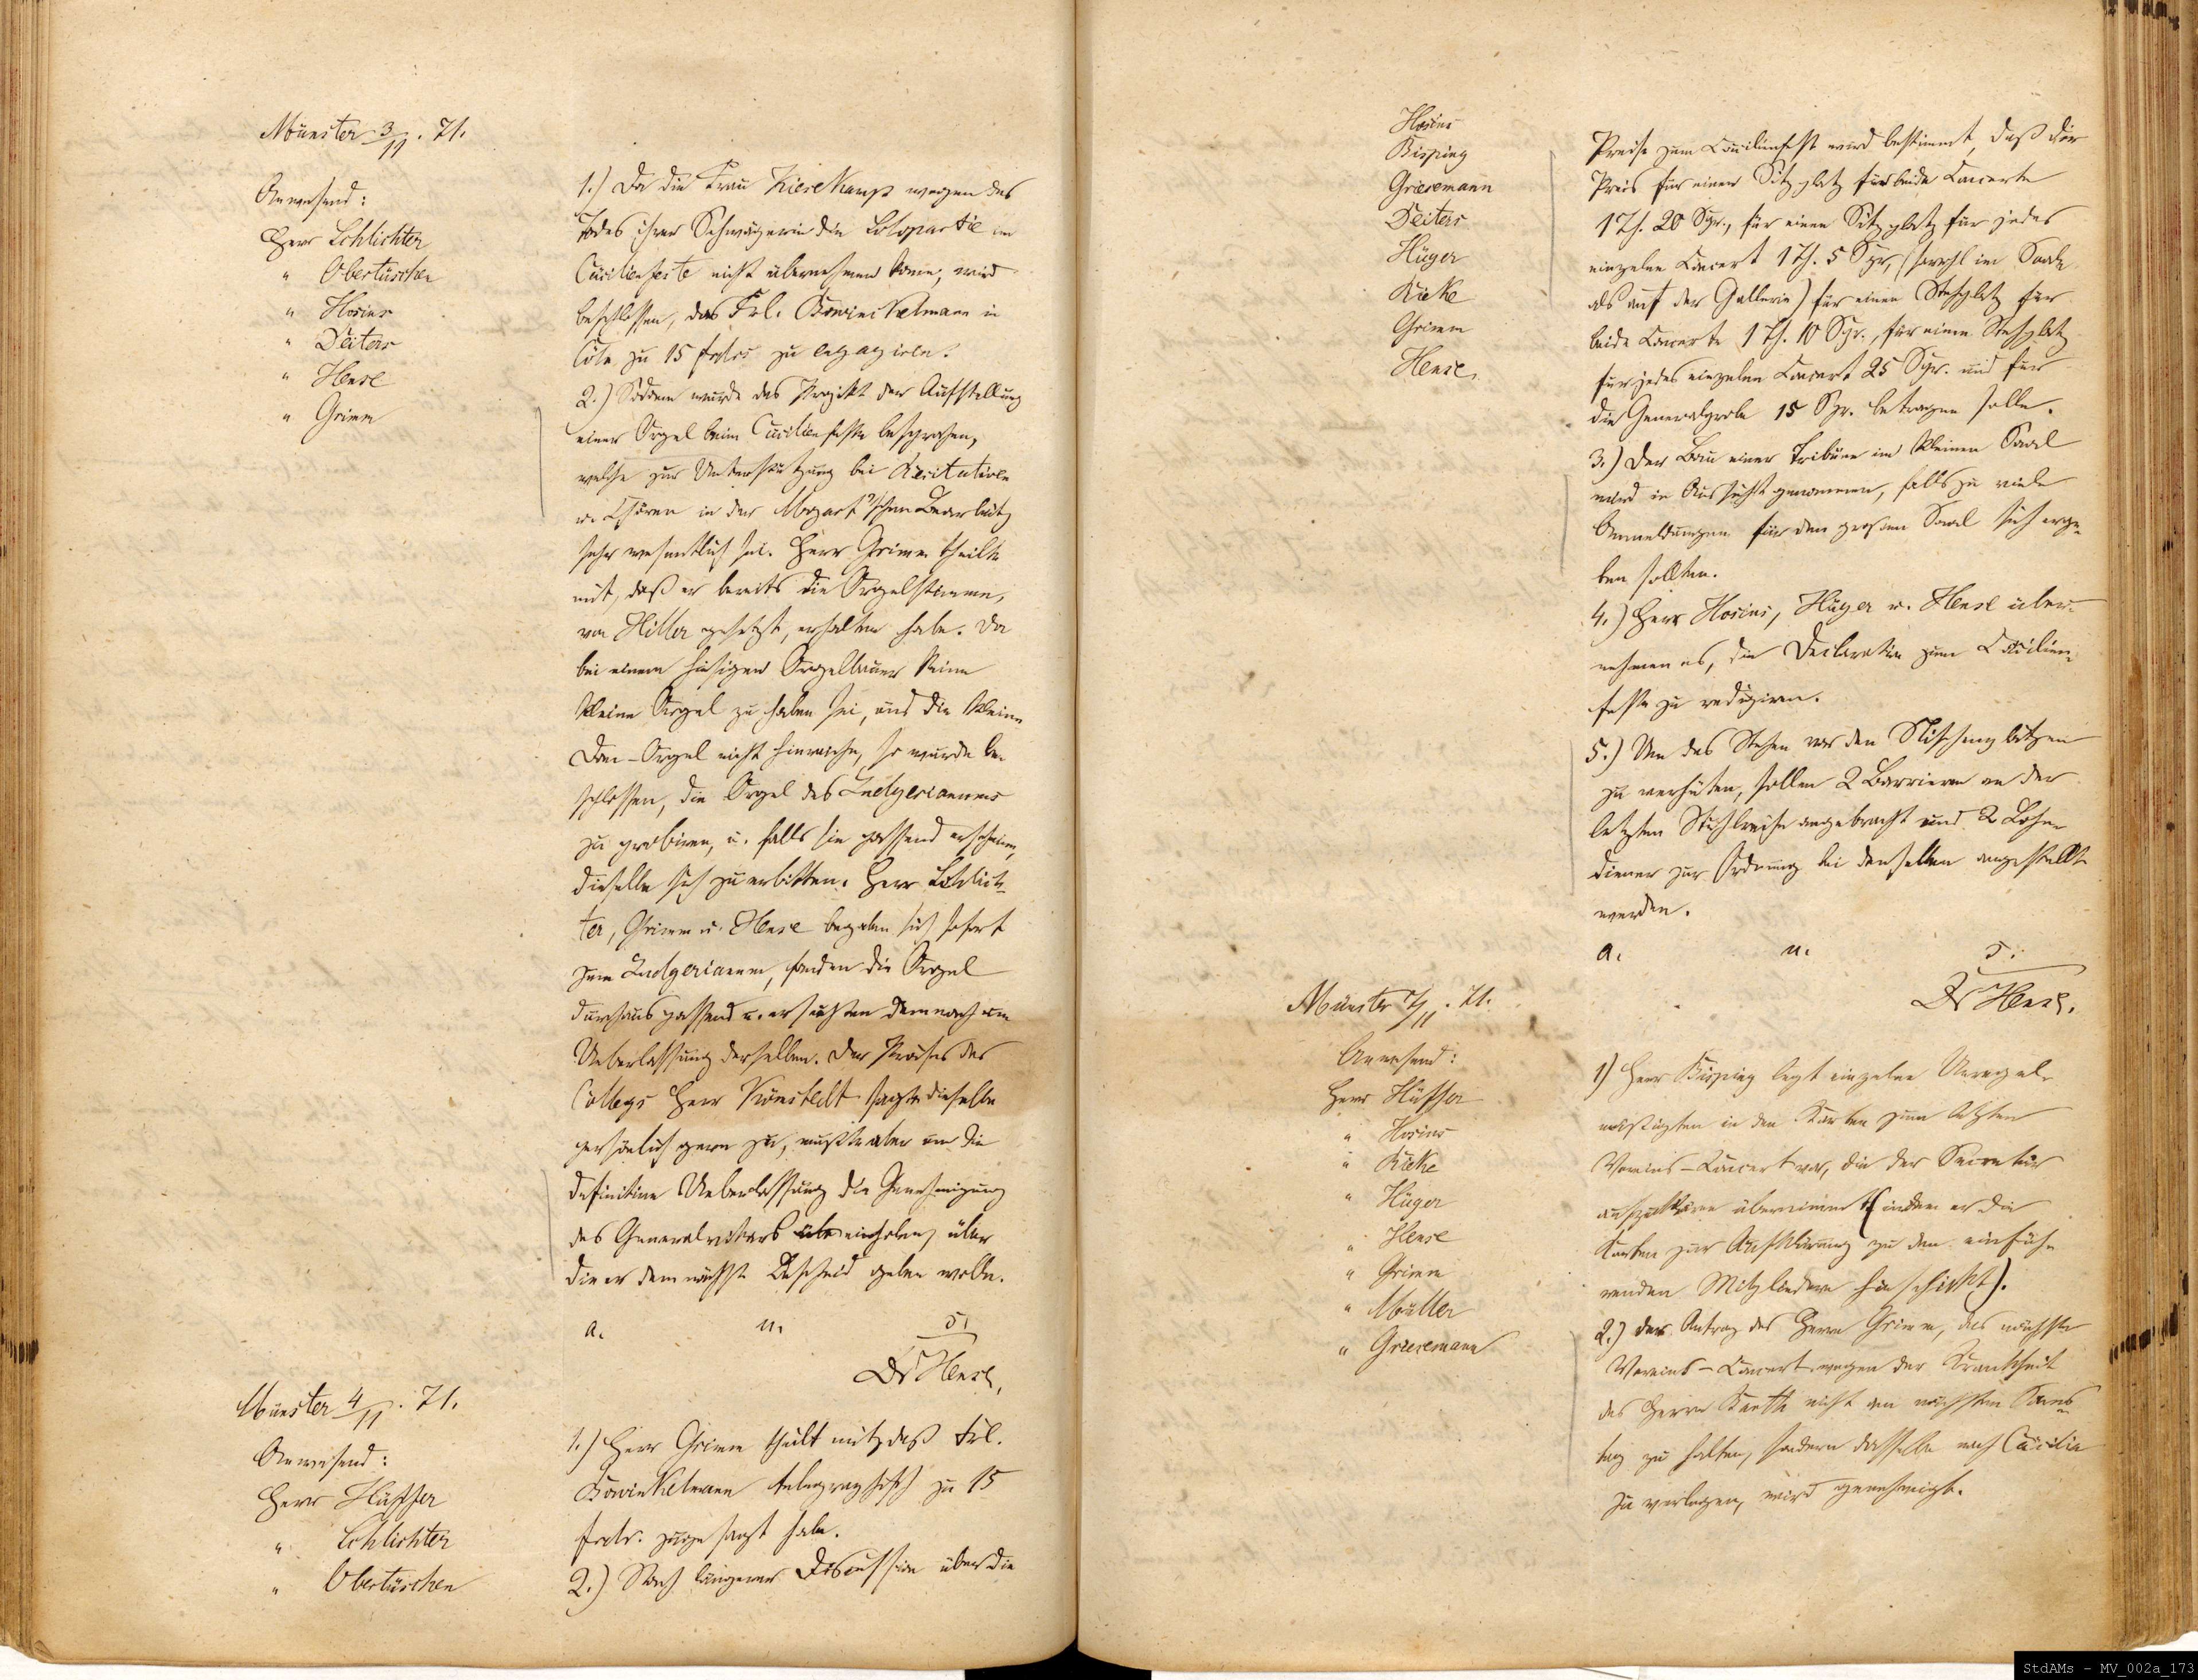 Münster 3/11. 71.
Anwesend:
Herr Schlichter
" Obertüschen
" Hosius
" Deiters
" Hense
" Grimm
1.) Da die Frau Kiesekamp wegen des
Todes ihrer Schwägerin die Solopartie im
Cäcilienfeste nicht übernehmen könne, wird
beschlossen, das Frl. Bowinkelmann in
Cöln zu 15 frdrs zu engagiren.
2.) Sodann wurde das Projekt der Aufstellung
einer Orgel beim Cäcilienfeste besprochen,
welche zur Unterstützung bei Recitativen
u. Chören in der Mozart'schen Bearbeitg
sehr wesentlich sei. Herr Grimm theilte
mit, daß er bereits die Orgelstimme,
von Hiller gesetzt, erhalten habe. Da
bei einem hiesigen Orgelbauer keine
kleine Orgel zu haben sei, und die kleine
Dom-Orgel nicht hinreiche, so wurde be
schlossen, die Orgel des Ludgerianums
zu probiren, u. falls sie passend erscheine,
dieselbe sich zu erbitten. Herr Schlich-
ter, Grimm u. Hense begaben sich sofort
zum Ludgerianum, fanden die Orgel
durchaus passend u. ersuchten demnach um
Ueberlassung derselben. Der Präses des
Collegs Herr Römstedt sagte dieselbe
persönlich gern zu, mußte aber um die
definitive Ueberlassung die Genehmigung
des Generalvikars einholen, über
die er demnächst Bescheid geben wolle.
a. u. s.
Dr Hense,
Münster 4/11. 71.
Anwesend:
Herr Hüffer
" Schlichter
" Obertüschen
1.) Herr Grimm theilt mit, daß Frl.
Bowinkelmann telegraphisch zu 15
frdr. zugesagt habe.
2.) Nach längerer Discussion über die
Hosius
Bisping
Griesemann
Deiters
Hüger
Kieke
Grimm
Hense,
Preise zum Cäcilienfest wird bestimmt, daß der
Preis für einen Sitzplatz für beide Concerte
1 Th. 20 Sgr., für einen Sitzplatz für jedes
einzelne Concert 1 Th. 5 Sgr, (sowohl im Saale
als auf der Gallerie) für einen Stehplatz für
beide Concerte 1 Th. 10 Sgr., für einen Stehplatz
für jedes einzelne Concert 25 Sgr. und für
die Generalprobe 15 Sgr. betragen solle.
3.) Der Bau einer Tribüne im kleinen Saal
wird in Aussicht genommen, falls zu viele
Anmeldungen für den großen Saal sich erge-
ben sollten.
4.) Herr Hosius, Hüger u. Hense über-
nehmen es, die Declaration zum Cäcilien-
feste zu redigiren.
5.) Um das Stehen vor den Nischenplätzen
zu verhüten, sollen 2 Barrieren an der
letzten Stuhlreihe angebracht und 2 Lohn-
diener zur Ordnung bei denselben angestellt
werden.
a. u. s.
Dr Hense.
Münster 7/11. 71.
Anwesend:
Herr Hüffer
" Hosius
" Kieke
" Hüger
" Hense
" Grimm
" Müller
" Griesemann
1) Herr Bisping legt einzelne Unregel-
mäßigkten in den Karten zum letzten
Vereins-Concert vor, die der Secretär
aufzuklären übernimmt (indem er die
Karten zur Aufklärung zu den einfüh-
renden Mitgliedern hinschickt).
2.) der Antrag des Herrn Grimm, das nächste
Vereins-Concert wegen der Krankheit
des Herrn Barth nicht am nächsten Sams
tag zu halten, sondern dasselbe nach Cäcilia
zu verlegen, wird genehmigt.
StdAMs - MV_002a_173